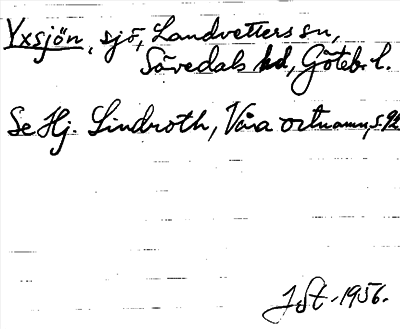 Yxsjön, sjö, Landvetters sn,
Sävedals hd, Götebr. l.
Se Hj. Lindroth, Våra ortnamn, s. 92
JSt. 1956.